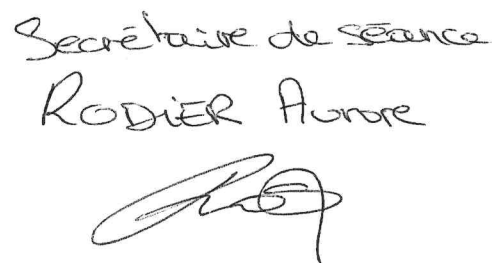 Secrétaire de séance
RODiER Aurore